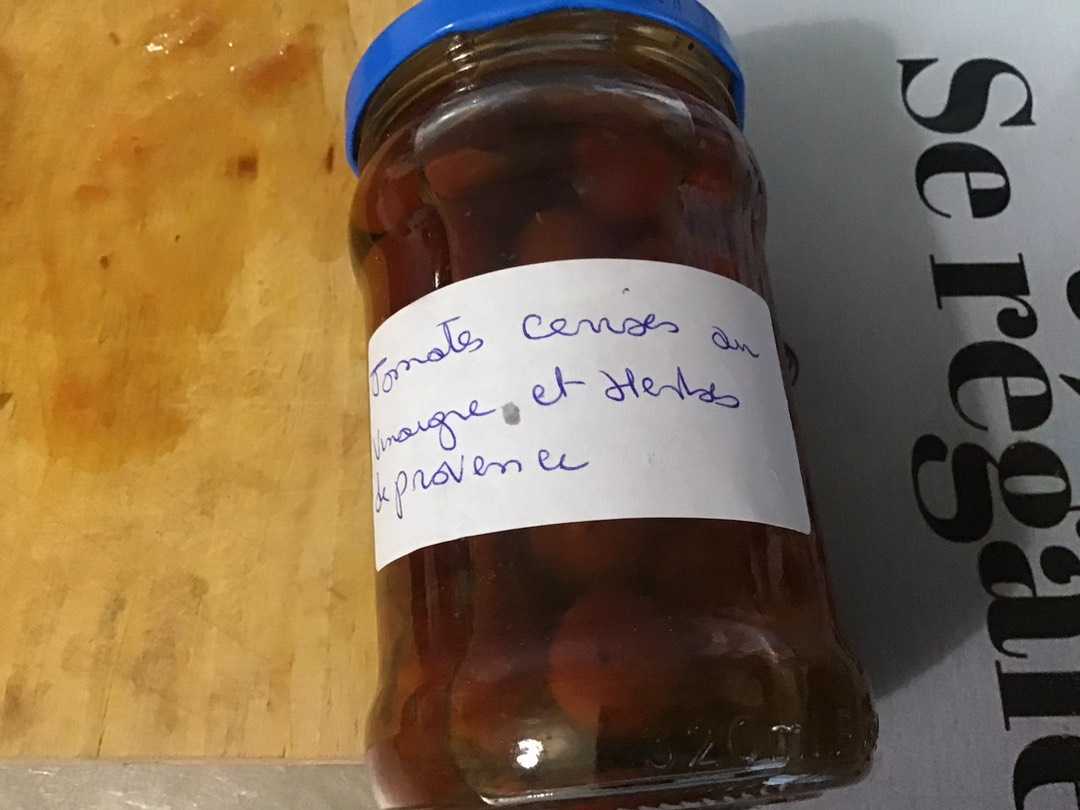 Tomates cerises au
Vinaigre et Herbes
de provence
Se régale
320ml